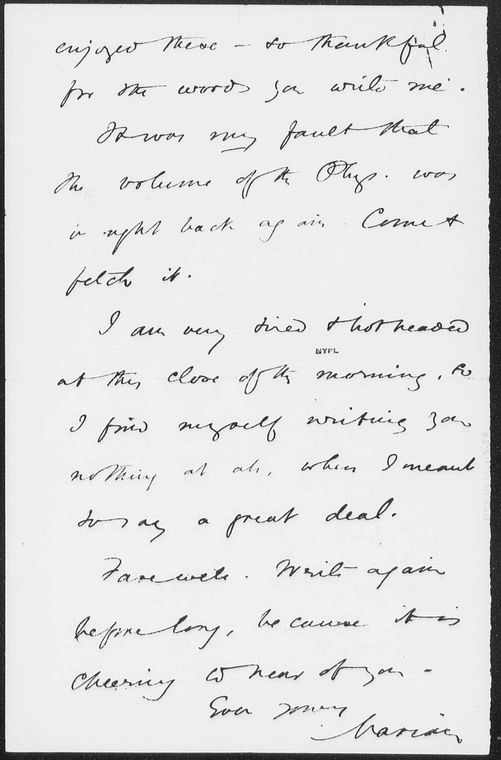 enjoyed these – so thankful
for the words you write me.
It was my fault that
the volume of the Phys. was
brought back again. Come &
fetch it.
I am very tired & hotheaded
NYPL
at this close of the morning, so
I find myself writing you
nothing at all, when I meant
to say a great deal.
Farewell. Write again
before long, because it is
cheering to hear of you.
Ever yours
Marian